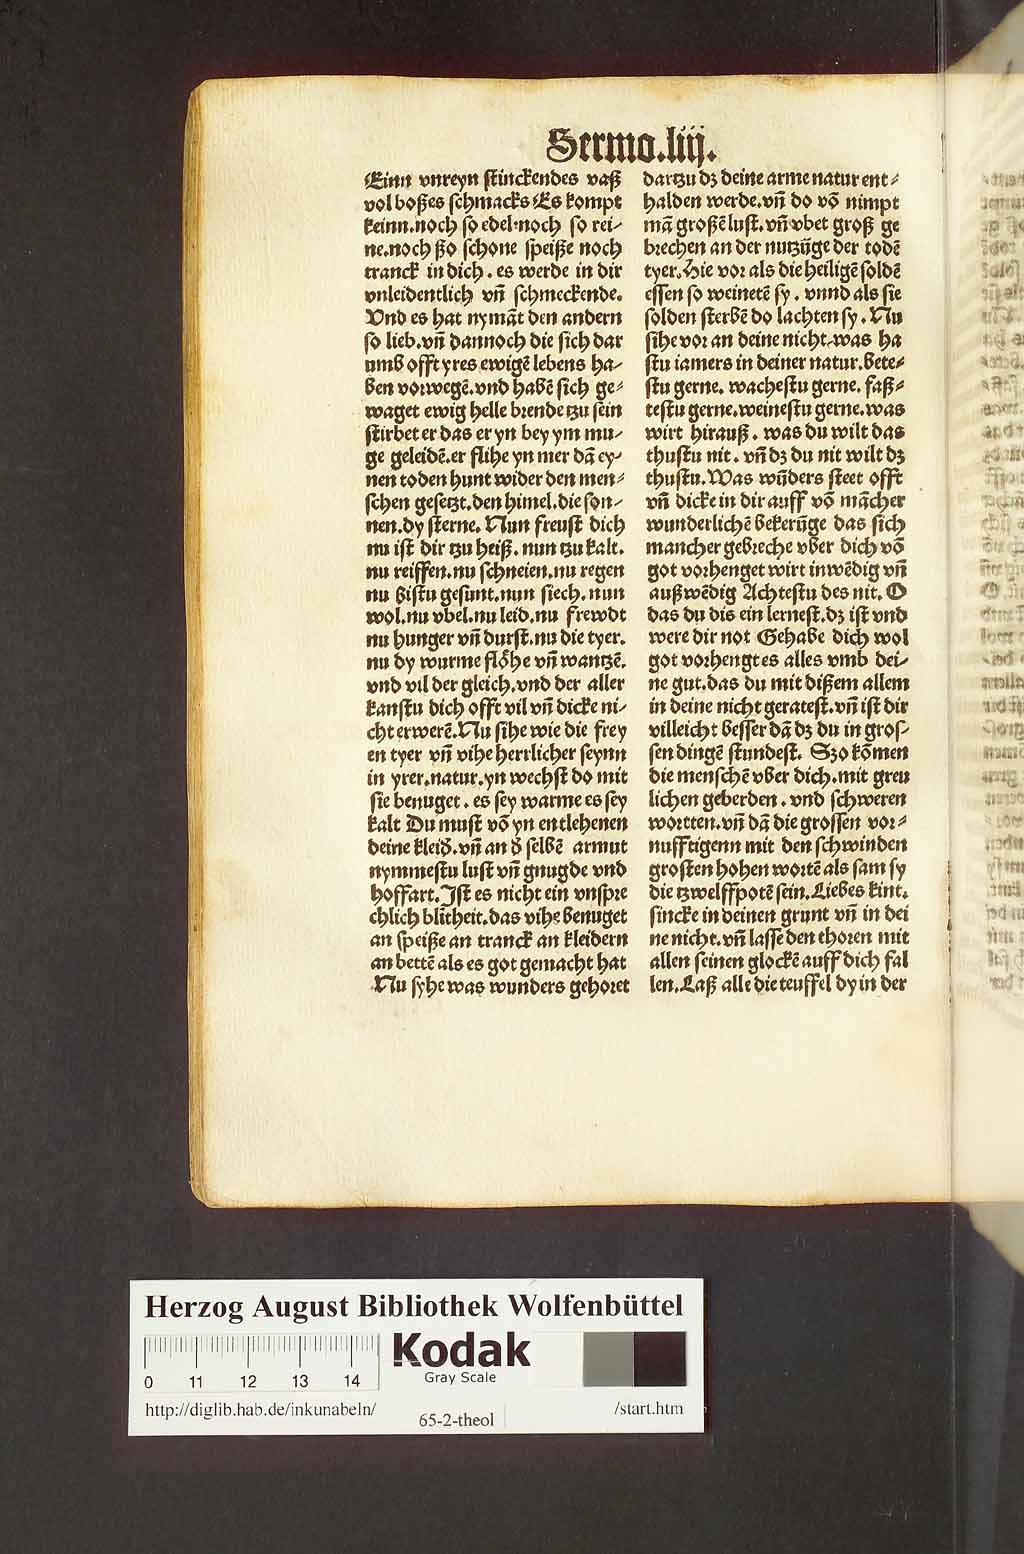 Sermo.liij.
Einn vnreyn stinckendes vaß
vol boßes schmacks Es kompt
keinn.noch so edel.noch so rei-
ne.noch ßo schone speiße noch
tranck in dich. es werde in dir
vnleidentlich vn̄ schmeckende.
Vnd es hat nymāt den andern
so lieb.vn̄ dannoch die sich dar
umb offt yres ewigē lebens ha-
ben vorwegē.vnd habē sich ge-
waget ewig helle brende tzu sein
stirbet er das er yn bey ym mu-
ge geleidē.er flihe yn mer dā ey-
nen toden hunt wider den men-
schen gesetzt.den himel.die son-
nen.dy sterne. Nun freust dich
nu ist dir tzu heiß. nun tzu kalt.
nu reiffen.nu schneien.nu regen
nu bistu gesunt.nun siech. nun
wol.nu vbel.nu leid.nu frewdt
nu hunger vn̄ durst.nu die tyer.
nu dy wurme flöhe vn̄ wantzē.
vnd vil der gleich.vnd der aller
kanstu dich offt vil vn̄ dicke ni-
cht erwerē.Nu sihe wie die frey
en tyer vn̄ vihe herrlicher seynn
in yrer.natur.yn wechst do mit
sie benuget. es sey warme es sey
kalt Du must vō yn entlehenen
deine kleid.vn̄ an d̕ selbē armut
nymmestu lust vn̄ gnugde vnd
hoffart.Ist es nicht ein vnspre
chlich blītheit.das vihe benuget
an speiße an tranck an kleidern
an bettē als es got gemacht hat
Nu syhe was wunders gehoret
dartzu dz deine arme natur ent-
halden werde.vn̄ do vō nimpt
mā großē lust.vn̄ vbet groß ge
brechen an der nutzūge der todē
tyer.Hie vor als die heiligē soldē
essen so weinetē sy. vnnd als sie
solden sterbē do lachten sy. Nu
sihe vor an deine nicht.was ha
stu iamers in deiner natur.bete-
stu gerne. wachestu gerne. faß-
testu gerne.weinestu gerne.was
wirt hirauß. was du wilt das
thustu nit. vn̄ dz du nit wilt dz
thustu.Was wūders steet offt
vn̄ dicke in dir auff vō mācher
wunderlichē bekerūge das sich
mancher gebreche vber dich vō
got vorhenget wirt inwēdig vn̄
außwēdig Achtestu des nit. O
das du dis ein lernest.dz ist vnd
were dir not Gehabe dich wol
got vorhengt es alles vmb dei-
ne gut.das du mit dißem allem
in deine nicht geratest.vn̄ ist dir
villeicht besser dā dz du in gros-
sen dingē stundest. Szo kōmen
die menschē vber dich.mit greu
lichen geberden. vnd schweren
wortten.vn̄ dā die grossen vor-
nufftigenn mit den schwinden
grosten hohen wortē als sam sy
die tzwelffpotē sein.Liebes kint.
sincke in deinen grunt vn̄ in dei
ne nicht.vn̄ lasse den thoren mit
allen seinen glockē auff dich fal
len.Laß alle die teuffel dy in der
Herzog August Bibliothek Wolfenbüttel
Kodak
Gray Scale
0 11 12 13 14
http://diglib.hab.de/inkunabeln/
65-2-theol
/start.htm